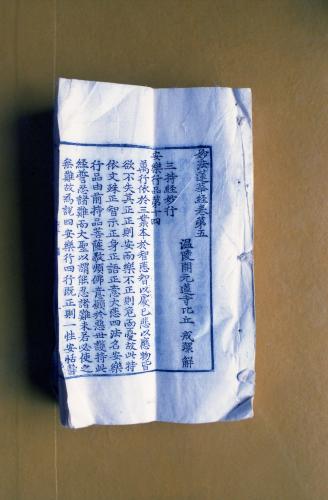 妙法蓮華經卷第五
溫陵開元蓮寺比丘 戒環解
三持經妙行
安樂行品第十四
萬行依於三業本於智悲智以處己悲以應物皆
欲不失其正正則安而樂不正則危而憂故此持
依文殊正智示正身正語正意大悲四法名安樂
行品由前持品菩薩敬順佛意願於惡世護持此
經普忍諸難而大聖以謂能忍諸難未若必使之
無難故為說四安樂行四行既正則一性安恬